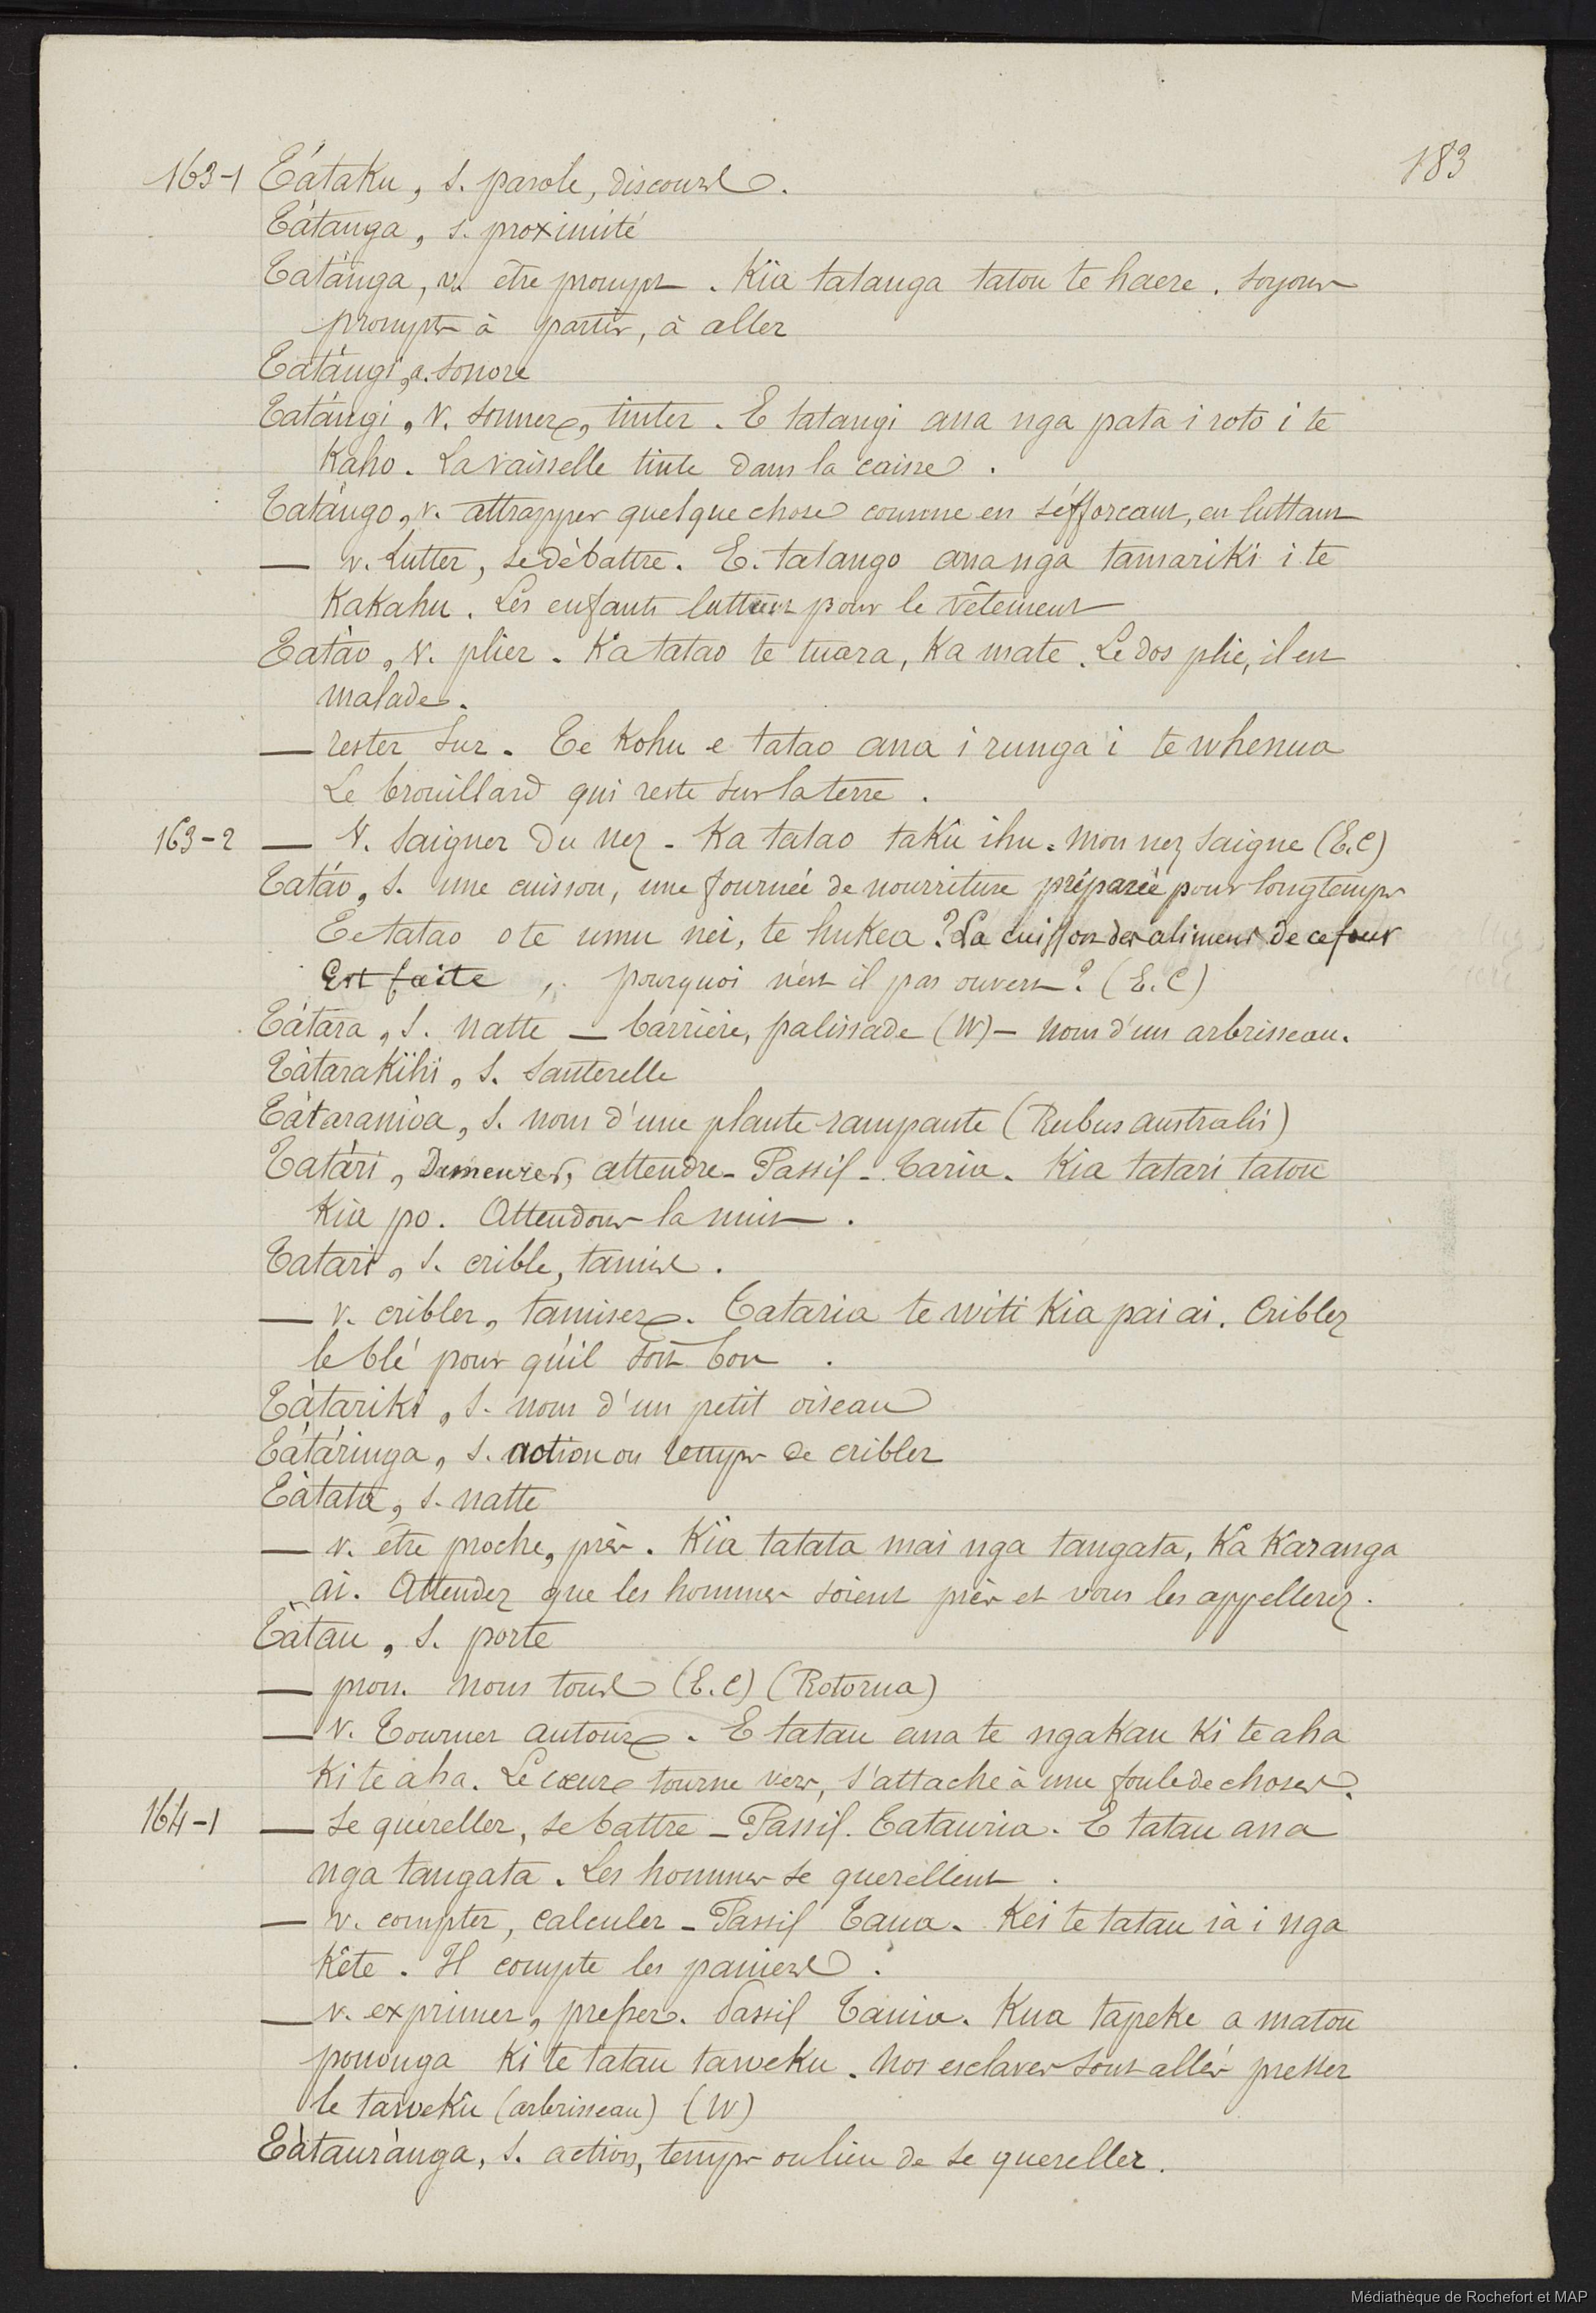 183
163-1 Tátaku, s. parole, discours.
Tátanga, s. proximité
Tatánga, v. être prompt. Kia tatanga tatou te haere. Soyons
prompts à partir, à aller
Tatángi, a. sonore
Tatángi, v. sonner, tinter. E tatangi ana nga pata i roto i te
Kaho. La vaisselle tinte dans la caisse.
Tatángo, v. attrapper quelque chose comme en s'éfforcant, en luttant
— v. Lutter, se dèbattre. E. tatango ana nga tamariki i te
Kakahu. Les enfants luttent pour le vêtement
Tatáo, v. plier. Ka tatao te tuara, Ka mate. Le dos plie, il est
malade.
— rester sur. Te Kohu e tatao ana i runga i te whenua
Le brouillard qui reste sur la terre.
163-2 — V. Saigner du nez - Ka tatao takû ihu. Mon nez saigne (E.C)
Tatáo, s. une cuisson, une fournée de nourriture préparée pour longtemps
Te tatao o te umu nei, te hukea? La cuisson des aliments de ce four
Est faite, pourquoi n'est il pas ouvert? (E.C)
Tátara, s. natte — barrière, palissade (W) — nom d'un arbrisseau.
Tàtarakihi, s. Sauterelle
Tàtaramòa, s. nom d'une plante rampante (Rubus australis)
Tatàri, Demeurer, attendre - Passif - Taria. Kia tatari tatou
Kia po. Attendons la nuit.
Tatari, s. crible, tamis.
— v. cribler, tamiser. Tataria te witi Kia pai ai. Criblez
le blé pour qu'il soit bon.
Tàtariki, s. nom d'un petit oiseau
Tátáringa, s. action ou temps de cribler
Tàtata, s. natte
— v. être proche, près. Kia tatata mai nga tangata, Ka Karanga
ai. Attendez que les hommes soient près et vous les appellerez.
Tàtau, s. porte
— pron. nous tous (E.C) (Rotorua)
— v. Tourner autour. E tatau ana te ngakau Ki te aha
Ki te aha. Le cœur tourne vers, s'attache à une foule de choses.
164-1 — Se quéreller, se battre - Passif. Tatauria. E tatau ana
nga tangata. Les hommes se querellent.
— v. compter, calculer - Passif Taua. Kei te tatau ia i nga
Kête. Il compte les paniers.
— v. exprimer, presser. Passif Tauia. Kua tapeke a matou
pononga Ki te tatau taweku. Nos esclaves sont allés presser
le tawekû (arbrisseau) (W)
Tàtauránga, s. action, temps ou lieu de se quereller.
Médiathèque de Rochefort et MAP